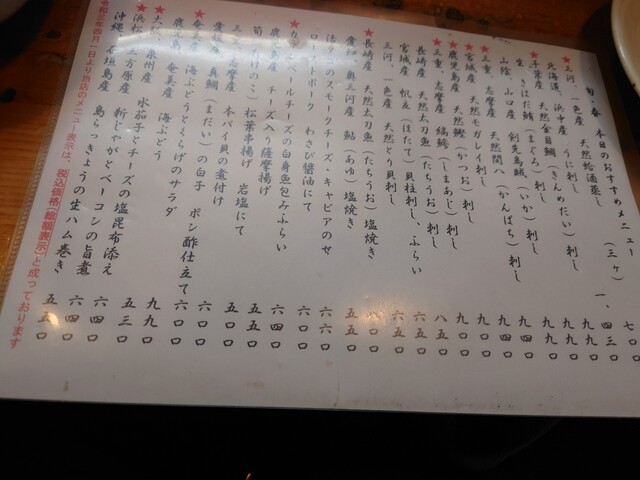 旬・春 本日のおすすめメニュー
★三河、一色産 天然蛤酒蒸し (三ヶ) 七〇〇
北海道、浜中産 うに刺し 一、四三〇
★千葉産 天然金目鯛(きんめだい)刺し 九九〇
鮪(まぐろ)刺し 九九〇
山陰、山口産 剣先烏賊(いか)刺し 九九〇
★三重、志摩産 天然間八(かんぱち)刺し 九四〇
天然モガレイ刺し 九四〇
★宮城産 天然鰹(かつお)刺し 九〇〇
★鹿児島産 縞鯵(しまあじ)刺し 九〇〇
★三重、志摩産 天然太刀魚(たちうお)刺し 八五〇
宮城産 帆立(ほたて)貝柱刺し、ふらい 六五〇
三河、一色産 天然とり貝刺し 六五〇
★長崎産 天然太刀魚(たちうお)塩焼き 八〇〇
奥三河産 鮎(あゆ)塩焼き 五五〇
のスモークチーズ・キャビアのせ 六六〇
ローストポーク わさび醤油にて 六〇〇
★カマンベールチーズの白身魚包みふらい 六四〇
鹿児島産 チーズ入り薩摩揚げ 五五〇
筍(たけのこ)松葉串揚げ 岩塩にて 五〇〇
三重、志摩産 本バイ貝の煮付け 六〇〇
真鯛(まだい)の白子 ポン酢仕立て 六〇〇
海ぶどうとくらげのサラダ 九九〇
鹿児島、奄美産 海ぶどう 五三〇
★大阪、泉州産 水茄子とチーズの塩昆布添え 六四〇
★浜松、三方原産 新じゃがとベーコンの旨煮 六四〇
沖縄、石垣島産 島らっきょうの生ハム巻き 五五〇
令和三年四月一日より当店のメニュー表示は、税込価格(総額表示)と成っております